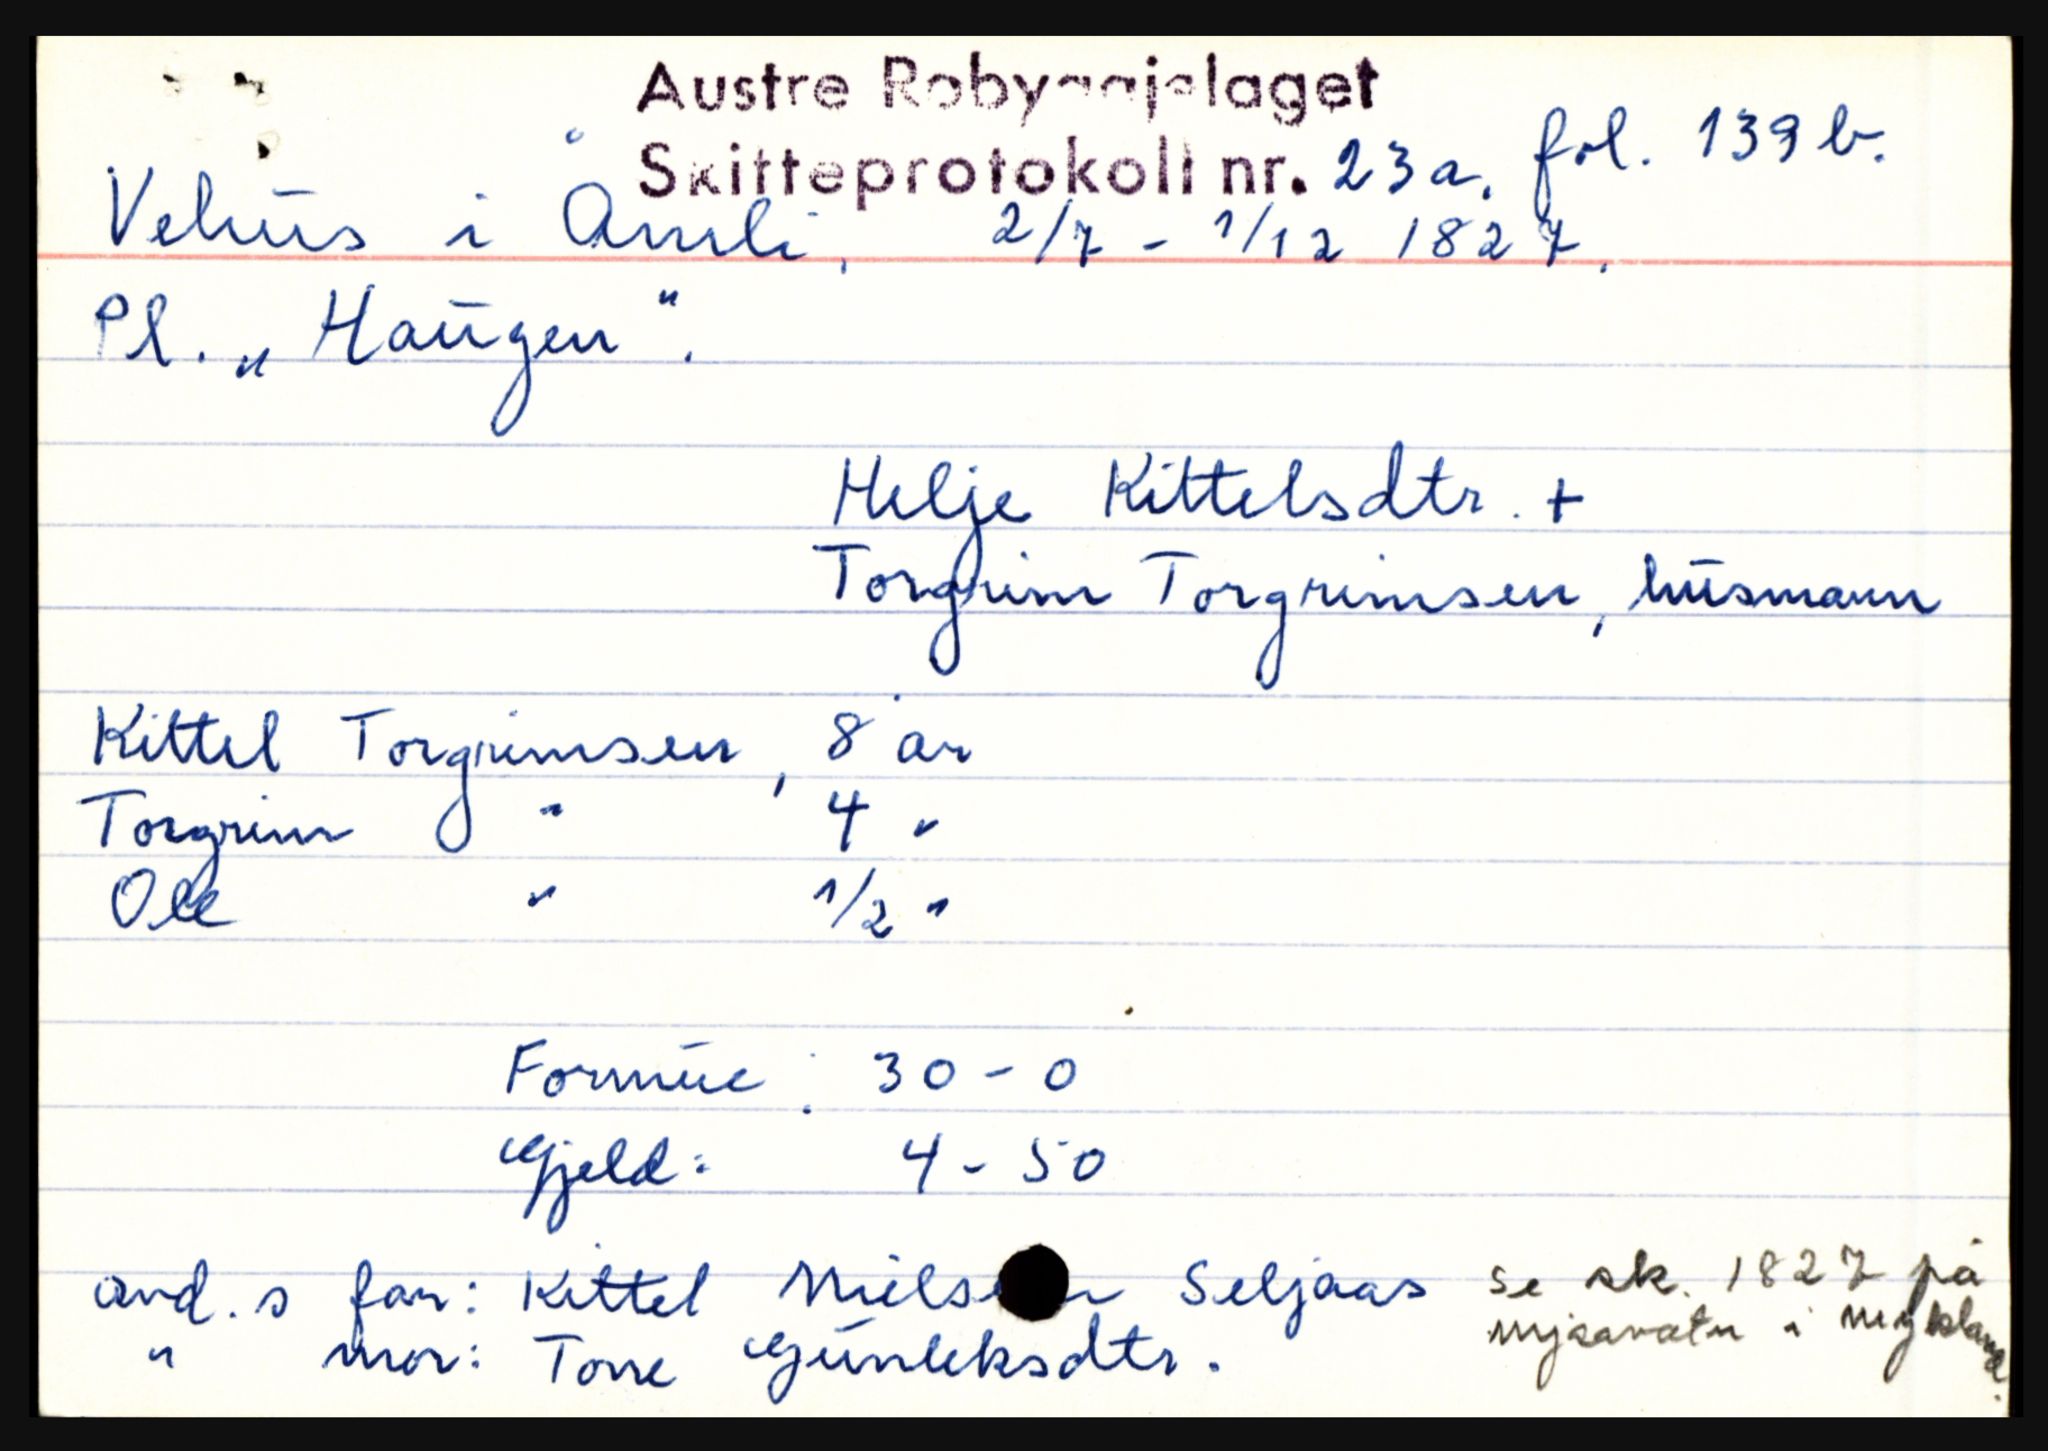 Austre Robyggjelaget
Skifteprotokoll nr. 23a, fol. 139 b.
Vehus i Åmli, 2/7 - 1/12 1827.
Pl. „Haugen".
Helje Kittelsdtr. +
Torgrim Torgrimsen, husmann
Kittel Torgrimsen, 8 år
Torgrim " 4 "
Ole " 1/2 "
Formue: 30 - 0
Gjeld: 4 - 50
avd. s far: Kittel Nielsen Seljaas se sk. 1827 på
" mor: Tone Gunleksdtr. i Mykland.